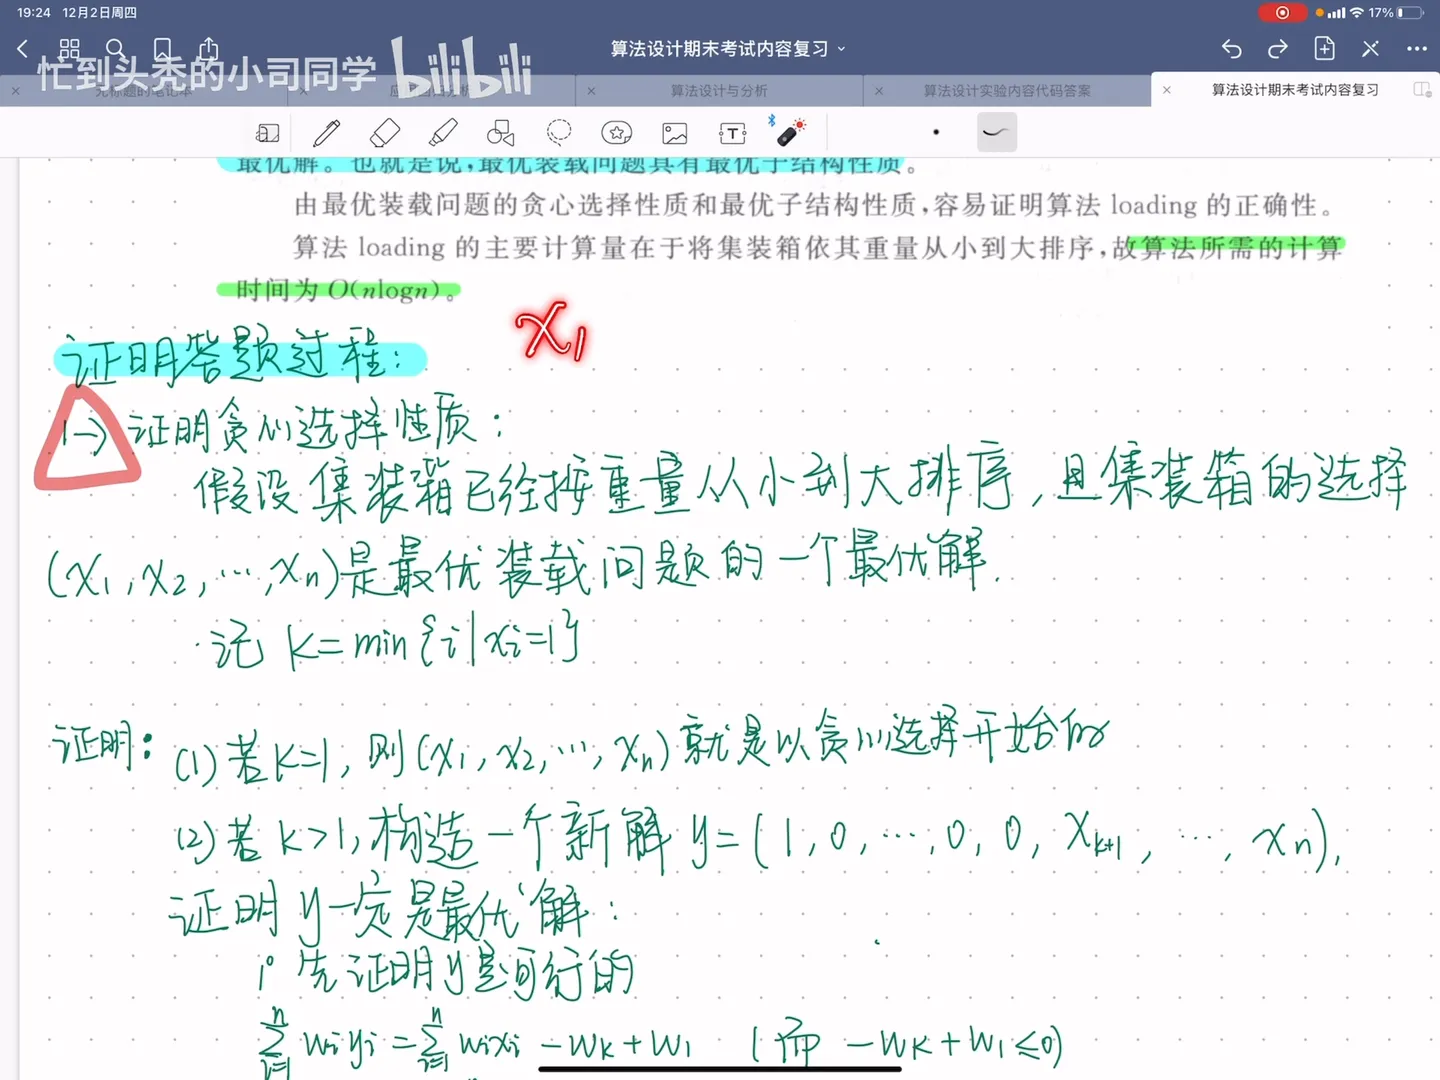 19:24 12月2日周四
17%
算法设计期末考试内容复习
忙到头秃的小司同学 bilibili
无标题的笔记本
算法设计与分析
算法设计实验内容代码答案
算法设计期末考试内容复习
最优解。也就是说,最优装载问题具有最优子结构性质。
由最优装载问题的贪心选择性质和最优子结构性质,容易证明算法 loading 的正确性。
算法 loading 的主要计算量在于将集装箱依其重量从小到大排序,故算法所需的计算
时间为 O(nlogn)。
x₁
证明答题过程:
一) 证明贪心选择性质:
假设集装箱已经按重量从小到大排序,且集装箱的选择
(x₁,x₂,…,xn)是最优装载问题的一个最优解.
记 k=min{i|xi=1}
证明: (1)若k=1,则(x₁,x₂,…,xn)就是以贪心选择开始的
(2)若k>1,构造一个新解 y=(1,0,…,0,0,xk+1,…,xn),
证明y一定是最优解:
1° 先证明y是可行的
∑ⁿᵢ₌₁ wiyi=∑ⁿᵢ₌₁ wixi-wk+w1 (而 -wk+w1≤0)